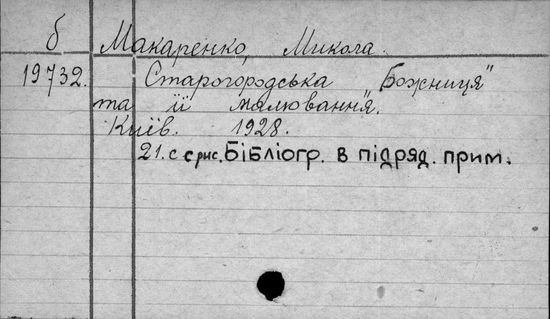 б Макаренко, Микола.
19732. Старогородська Божниця"
та її малювання".
Київ. 1928.
21. с с рис. Бібліогр. в підряд. прим.